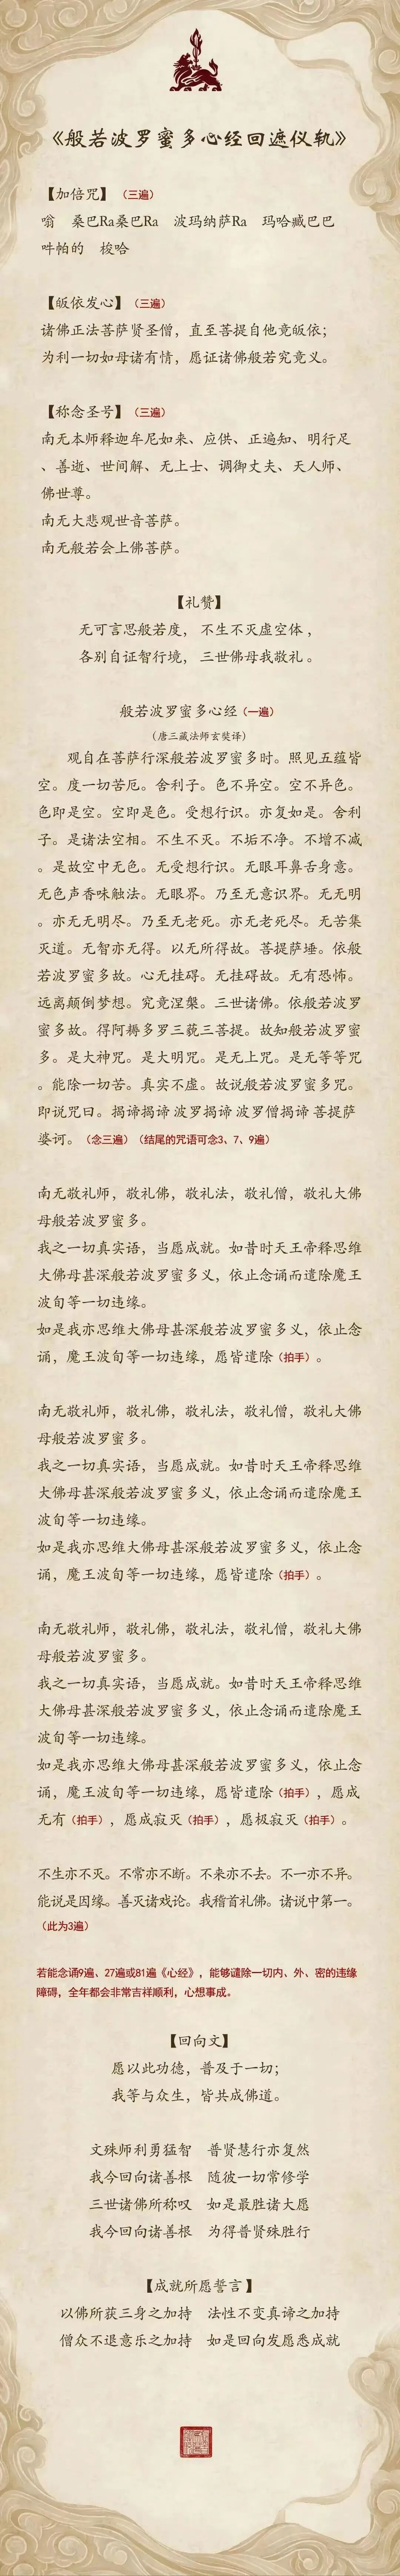 《般若波罗蜜多心经回遮仪轨》
【加倍咒】（三遍）
嗡　桑巴Ra桑巴Ra　波玛纳萨Ra　玛哈臧巴巴
吽帕的　梭哈
【皈依发心】（三遍）
诸佛正法菩萨贤圣僧，直至菩提自他竟皈依；
为利一切如母诸有情，愿证诸佛般若究竟义。
【称念圣号】（三遍）
南无本师释迦牟尼如来、应供、正遍知、明行足
、善逝、世间解、无上士、调御丈夫、天人师、
佛世尊。
南无大悲观世音菩萨。
南无般若会上佛菩萨。
【礼赞】
无可言思般若度， 不生不灭虚空体，
各别自证智行境， 三世佛母我敬礼。
般若波罗蜜多心经（一遍）
（唐三藏法师玄奘译）
观自在菩萨行深般若波罗蜜多时。照见五蕴皆
空。度一切苦厄。舍利子。色不异空。空不异色。
色即是空。空即是色。受想行识。亦复如是。舍利
子。是诸法空相。不生不灭。不垢不净。不增不减
。是故空中无色。无受想行识。无眼耳鼻舌身意。
无色声香味触法。无眼界。乃至无意识界。无无明
。亦无无明尽。乃至无老死。亦无老死尽。无苦集
灭道。无智亦无得。以无所得故。菩提萨埵。依般
若波罗蜜多故。心无挂碍。无挂碍故。无有恐怖。
远离颠倒梦想。究竟涅槃。三世诸佛。依般若波罗
蜜多故。得阿耨多罗三藐三菩提。故知般若波罗蜜
多。是大神咒。是大明咒。是无上咒。是无等等咒
。能除一切苦。真实不虚。故说般若波罗蜜多咒。
即说咒曰。揭谛揭谛 波罗揭谛 波罗僧揭谛 菩提萨
婆诃。（念三遍）（结尾的咒语可念3、7、9遍）
南无敬礼师，敬礼佛，敬礼法，敬礼僧，敬礼大佛
母般若波罗蜜多。
我之一切真实语，当愿成就。如昔时天王帝释思维
大佛母甚深般若波罗蜜多义，依止念诵而遣除魔王
波旬等一切违缘。
如是我亦思维大佛母甚深般若波罗蜜多义，依止念
诵，魔王波旬等一切违缘，愿皆遣除（拍手）。
南无敬礼师，敬礼佛，敬礼法，敬礼僧，敬礼大佛
母般若波罗蜜多。
我之一切真实语，当愿成就。如昔时天王帝释思维
大佛母甚深般若波罗蜜多义，依止念诵而遣除魔王
波旬等一切违缘。
如是我亦思维大佛母甚深般若波罗蜜多义，依止念
诵，魔王波旬等一切违缘，愿皆遣除（拍手）。
南无敬礼师，敬礼佛，敬礼法，敬礼僧，敬礼大佛
母般若波罗蜜多。
我之一切真实语，当愿成就。如昔时天王帝释思维
大佛母甚深般若波罗蜜多义，依止念诵而遣除魔王
波旬等一切违缘。
如是我亦思维大佛母甚深般若波罗蜜多义，依止念
诵，魔王波旬等一切违缘，愿皆遣除（拍手），愿成
无有（拍手），愿成寂灭（拍手），愿极寂灭（拍手）。
不生亦不灭。不常亦不断。不来亦不去。不一亦不异。
能说是因缘。善灭诸戏论。我稽首礼佛。诸说中第一。
（此为3遍）
若能念诵9遍、27遍或81遍《心经》，能够谴除一切内、外、密的违缘
障碍，全年都会非常吉祥顺利，心想事成。
【回向文】
愿以此功德，普及于一切；
我等与众生，皆共成佛道。
文殊师利勇猛智　普贤慧行亦复然
我今回向诸善根　随彼一切常修学
三世诸佛所称叹　如是最胜诸大愿
我今回向诸善根　为得普贤殊胜行
【成就所愿誓言】
以佛所获三身之加持　法性不变真谛之加持
僧众不退意乐之加持　如是回向发愿悉成就